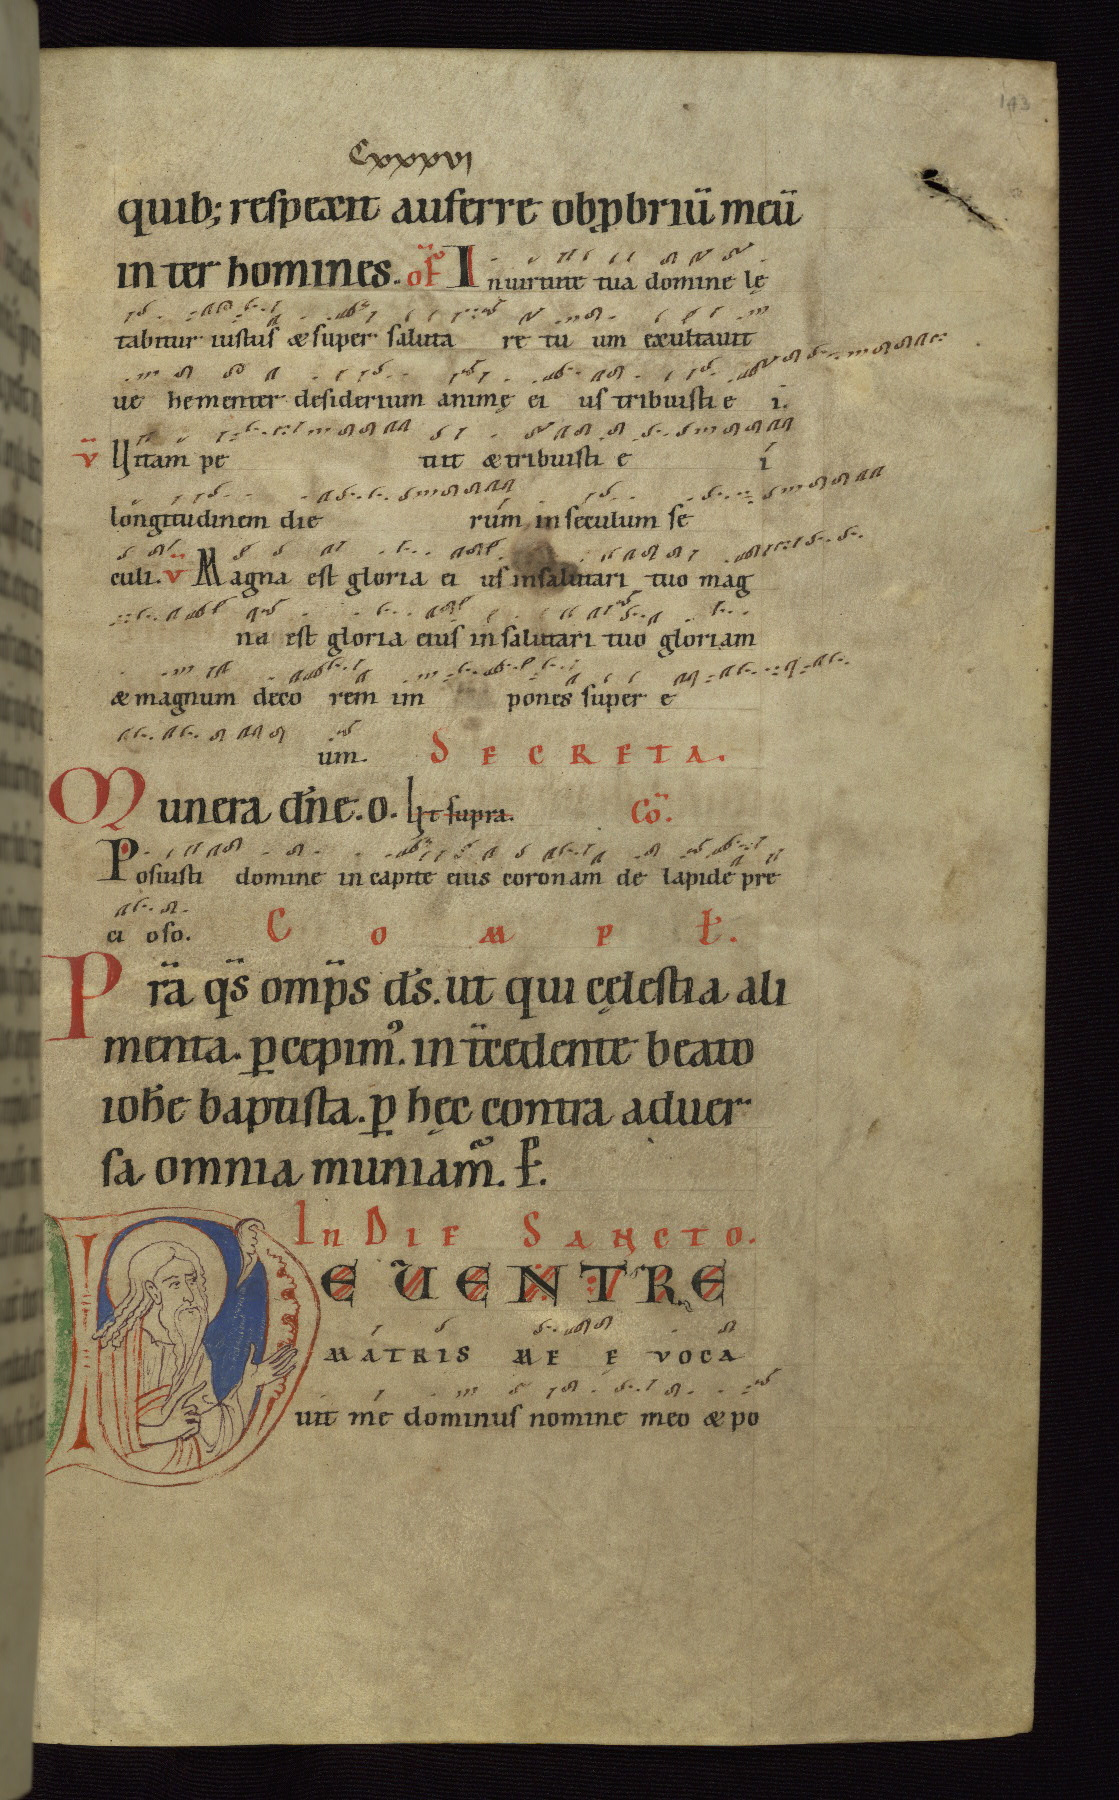 143
Cxxxvi
quib; respexit auferre obprbriū meū
in ter homines. of̄ In uirtute tua domine lę
tabitur iustus & super saluta re tu um exultauit
ue hementer desiderium animę ei us tribuisti e i.
v̄ Uitam pe tiit & tribuisti e i
longitudinem die rum in seculum se
culi. v̄ Magna est gloria ei us in salutari tuo mag
na est gloria eius in salutari tuo gloriam
& magnum deco rem im pones super e
um. SECRETA.
Munera dn̄e. o. Ut supra. Cō.
Posuisti domine in capite eius coronam de lapide pre
ci oso. COMPL̄.
Pr̄a qs̄ omp̄s ds̄. ut qui cęlestia ali
menta. p̱cepim᾽. in t̄cedente beato
ioh̄e baptista. p̱ hęc contra aduer
sa omnia muniam̄. P̱.
In DIE SANCTO.
DE UENTRE
MATRIS ME E VOCA
uit me dominus nomine meo & po